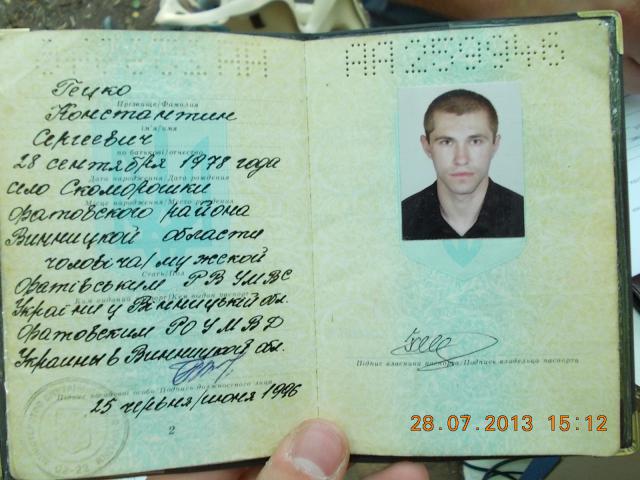 Гецко
Прізвище/Фамилия
Константин
ім'я/имя
Сергеевич
по батькові/отчество
28 сентября 1978 года
Дата народження/Дата рождения
село Скоморошки
Місце народження/Место рождения
Оратовского района
Винницкой области
чоловіча/мужской
Стать/Пол
Оратівським РВ УМВС
Ким виданий паспорт/Кем выдан паспорт
України у Вінницькій обл.
Оратовским РО УМВД
Украины в Винницкой обл.
Підпис посадової особи/Подпись должностного лица
25 червня/июня 1996
2
АА259946
Підпис власника паспорта/Подпись владельца паспорта
28.07.2013 15:12